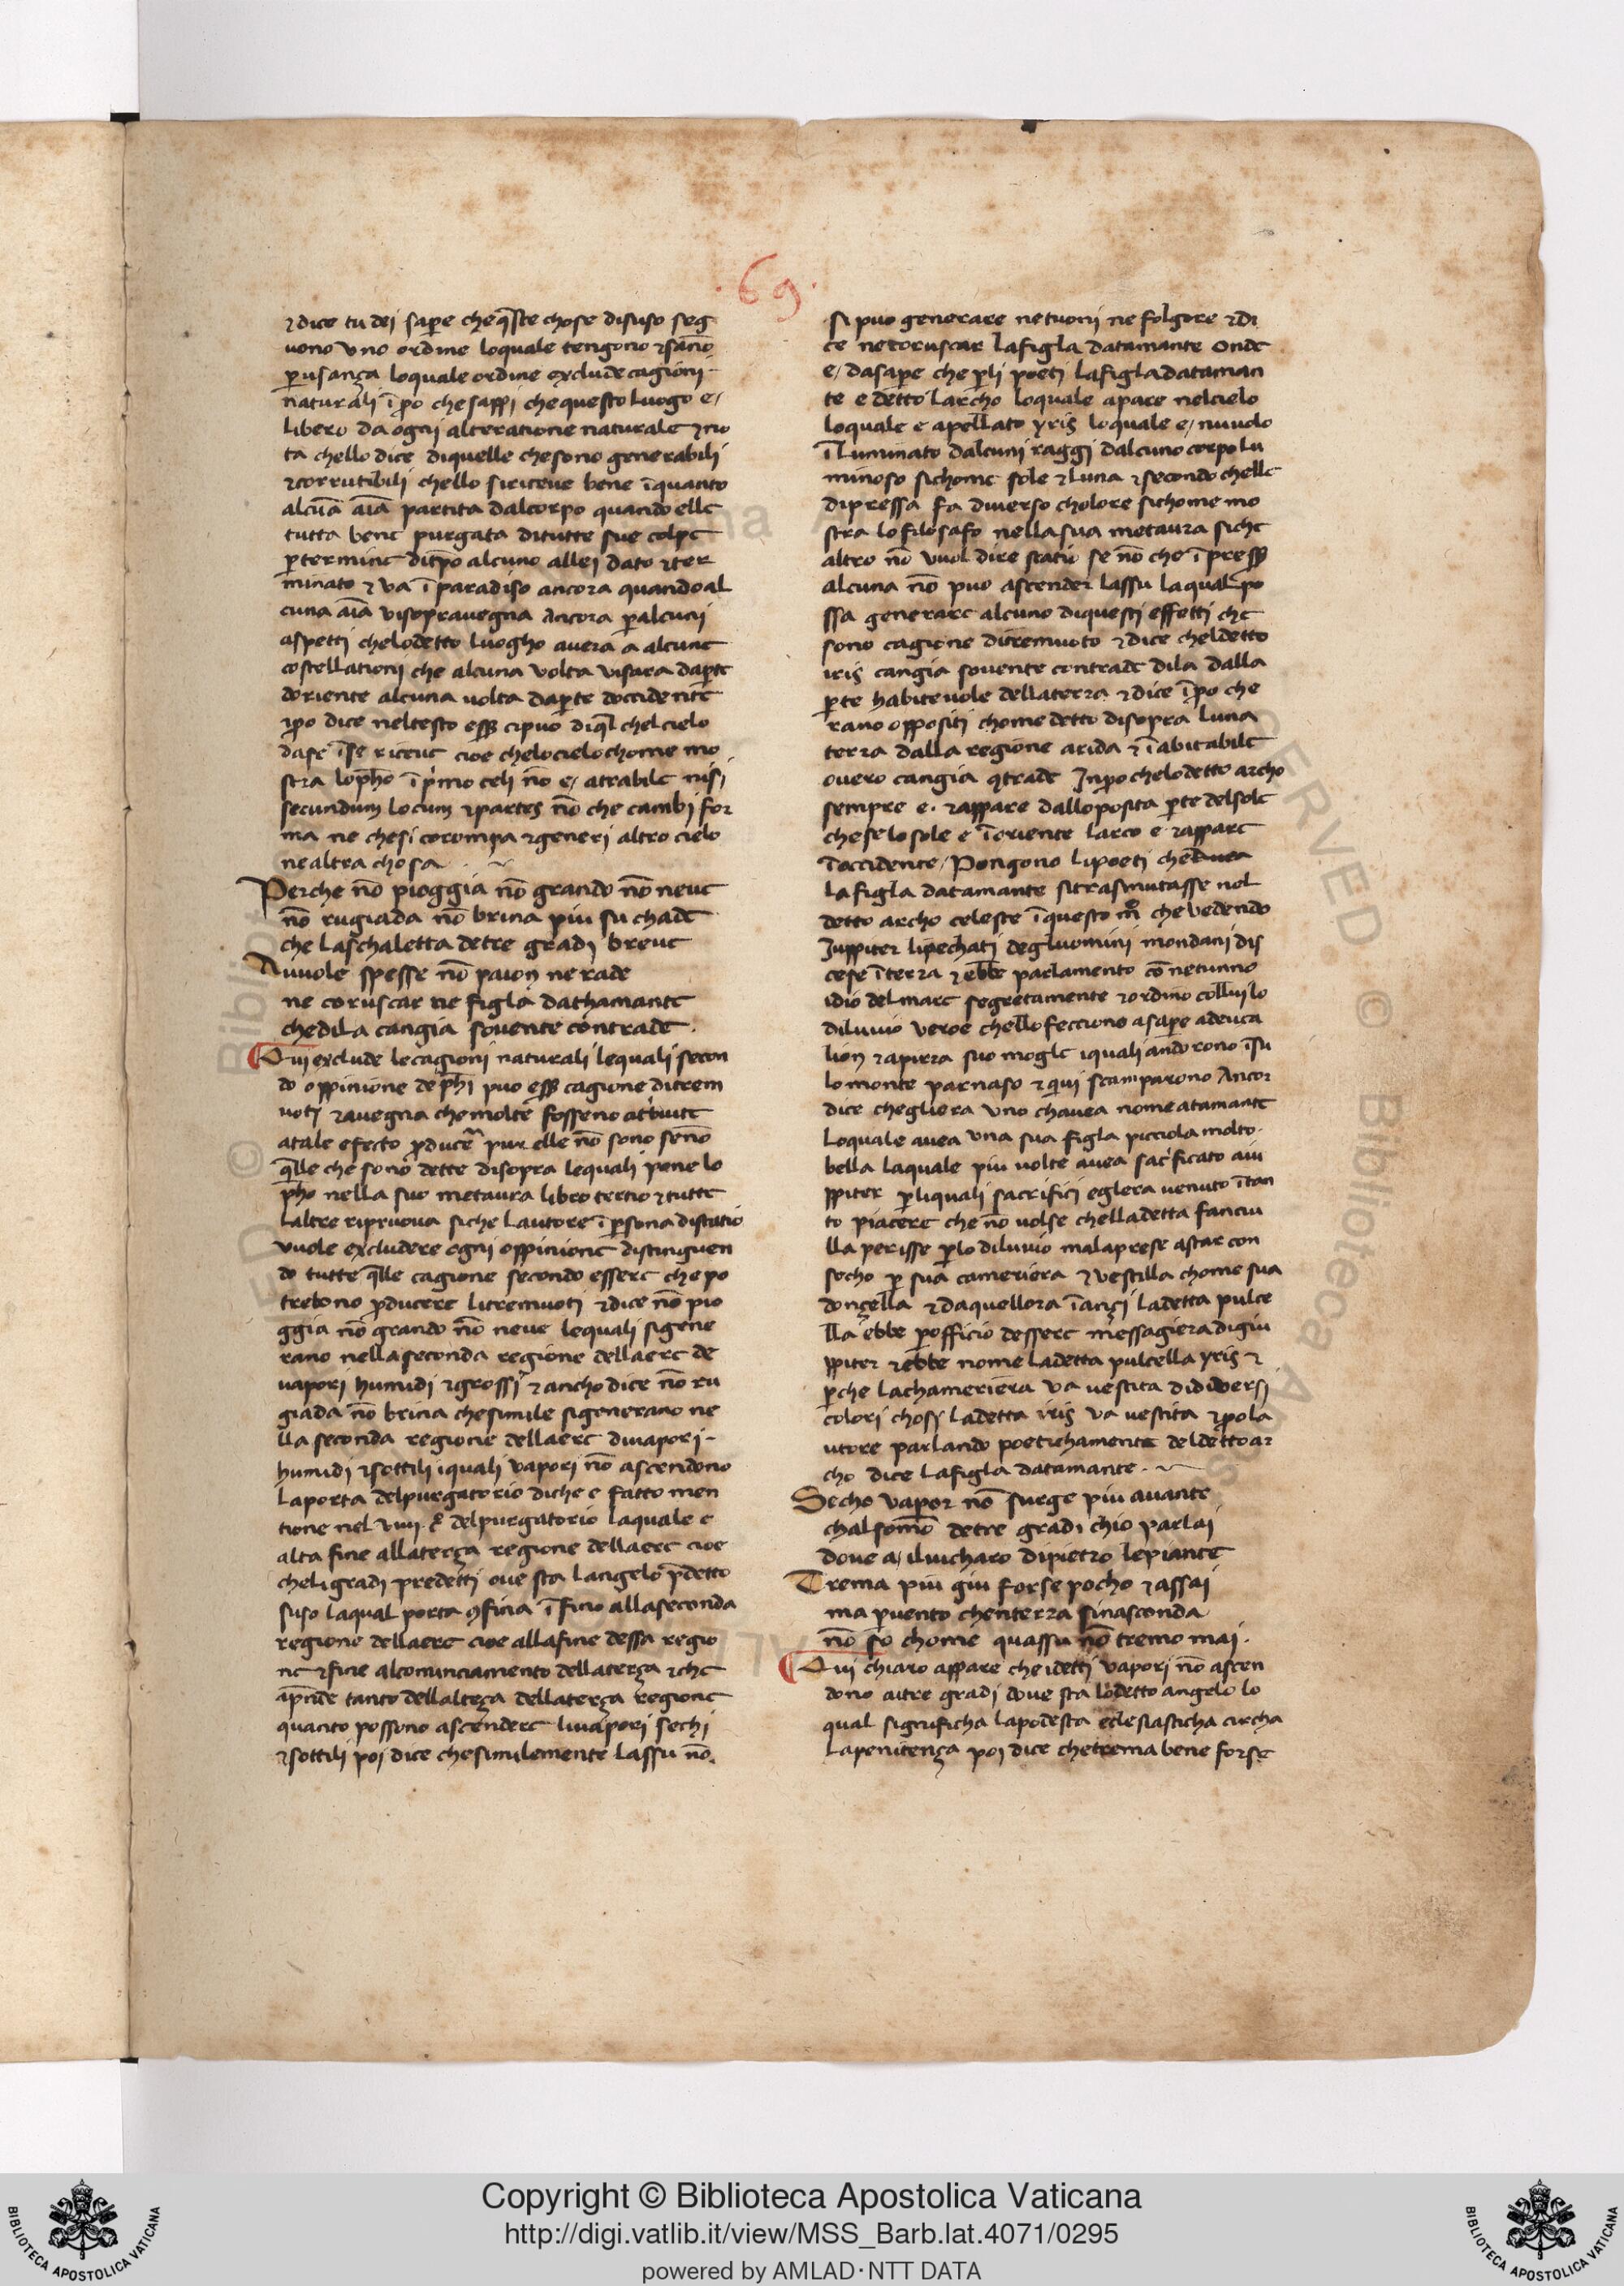 ·69·
⁊dice tu dei sap̱e che q̄ste chose disuso seg
uono vno ordine loquale tengono ⁊sāno
p̱usança loquale ordine exclude cagioni
naturali ī p̱o che sappi che questo luogo e/
libero da ogni alteratione naturale ⁊no
ta chello dice diquelle chesono generabili
⁊corrutibili chello siriceue bene īquanto
alcūa aīa partita dalcorpo quando elle
tutta bene purgata ditutte sue colpe
p̱termine dītp̱o alcuno allei dato ⁊ter
minato ⁊ va ī paradiso ancora quando al
cuna aīa visopravegna Ancora p̱alcuni
aspetti chelodetto luogho auerà a alcune
costellationi che alcuna volta visara dap̱te
doriente alcuna uolta dap̱te doccidente
ip̱o dice neltesto esser cipuo diq̄l chel cielo
dase īse riceue cioe chelo cielo chome mo
stra lop̄ho ī p̄mo celi nō e/ atrabile nisi
secundum locum ⁊partes nō che cambi for
ma ne chesi corompa ⁊generi altro cielo
nealtra chosa
Perche nō pioggia nō grando nō neue
nō rugiada nō brina piu su chade
che laschaletta detre gradi breue
Nuuole spesse nō paion ne rade
ne coruscar ne figla dathamante
chedila cangia souente contrade.
Qui exclude lecagioni naturali lequali secon
do oppinione de p̄hi puo esser cagione ditrem
uoti ⁊auegna che molte fosseno attbuite
atale efecto p̱ducere pur elle nō sono senō
q̄lle che sono dette disopra lequali pone lo
p̄ho nella suo metaura libro tertio ⁊tutte
laltre ripruoua siche lautore ī p̱sona distatio
vuole excludere ogni oppinione distinguen
do tutte q̄lle cagione secondo essere che po
trebono p̱ducere litremuoti ⁊dice nō pio
ggia nō grando nō neue lequali sigene
rano nella seconda regione dellaere de
uapori humidi ⁊grossi ⁊ ancho dice nō ru
giada nō brina chesimile sigenerano ne
lla seconda regione dellaere diuapori
humidi ⁊sottili iquali vapori nō ascendono
laporta delpurgatorio diche e fatto men
tione nel viiii c̊ delpurgatorio laquale e
alta fine allaterça regione dellaere cioe
cheli gradi predetti oue sta langelo p̄detto
suso laqual porta 9fina ī fino allaseconda
regione dellaere cioe allafine dessa regio
ne ⁊fine alcominciamento dellaterça ⁊che
ap̄nde tanto dellalteça dellaterça regione
quanto possono ascendere liuapori sechi
⁊sottili poi dice chesimilemente lassu nō
si puo generare netuoni ne folgore ⁊di
ce necoruscar lafigla datamante onde
e/ dasap̱e che p̱li poeti lafigladataman
te e detto larcho loquale apare nelcielo
loquale e apellato yris loquale e/ nuuolo
īluminato dalcuni raggi dalcuno corpo lu
minoso sichome sole ⁊ luna ⁊ secondo chelle
dipressa fa diuerso cholore sichome mo
stra lo filosafo nella sua metaura siche
altro nō vuol dire statio se nō che īpressīō
alcuna nō puo ascender lassu laqual po
ssa generare alcuno diquesti effetti che
sono cagione ditremuoto ⁊ dice cheldetto
iris cangia souente contrade dila dalla
p̱te habiteuole dellaterra ⁊ dice īp̱o che
rano oppositi chome detto disopra luna
terra dalla regione arida ⁊ īabitabile
ouero cangia 9trade Inp̱o chelodetto archo
sempre e. ⁊appare dalloposita p̱te delsole
cheselo sole e īoriente larco e ⁊appare
īoccidente/ Pongono lipoeti che
lafigla datamante sitrasmutasse nel
detto archo celeste īquesto m̊ che vedendo
Juppiter lipechati degluomini mondani dis
cese īterra ⁊ ebbe parlamento cō netunno
idio delmare segretamente ⁊ordino collui lo
diluuio veroe chello feccione asap̱e adeuca
lion ⁊apirra suo mogle iquali andorono īsu
lo monte parnaso ⁊ qui scamparono Ancor
dice chegliera vno chauea nome atamante
loquale auea vna sua figla picciola molto
bella laquale piu uolte auea sacrficato aiu
ppiter p̱liquali sacrifici eglera uenuto ītan
to piacere che nō uolse chelladetta fanciu
lla perisse p̱lo diluuio malaprese astar con
secho p̱ sua cameriera ⁊vestilla chome sua
donçella ⁊daquellora īançi ladetta pulce
lla ebbe p̱officio dessere messagiera digiu
ppiter ⁊ebbe nome ladetta pulcella yris ⁊
p̱che lachameriera va uestita didiuersi
colori chosi ladetta iris va uestita ⁊p̱o la
utore parlando poetichamente deldetto ar
cho dice lafigla datamante.
Secho vapor nō surge piu auante
chal somo detre gradi chio parlai
doue a/ iluicharo dipietro lepiante
Trema piu giu forse pocho ⁊ assai
ma p̱uento chenterra sinasconda
nō so chome quassu nō tremo mai.
Qui chiaro appare che idetti vapori nō ascen
dono aitre gradi doue sta lodetto angelo lo
qual significha lapodesta eclesiasticha circha
lapenitença poi dice chetrema bene forse
Copyright © Biblioteca Apostolica Vaticana
http://digi.vatlib.it/view/MSS_Barb.lat.4071/0295
powered by AMLAD·NTT DATA
BIBLIOTECA APOSTOLICA VATICANA
BIBLIOTECA APOSTOLICA VATICANA